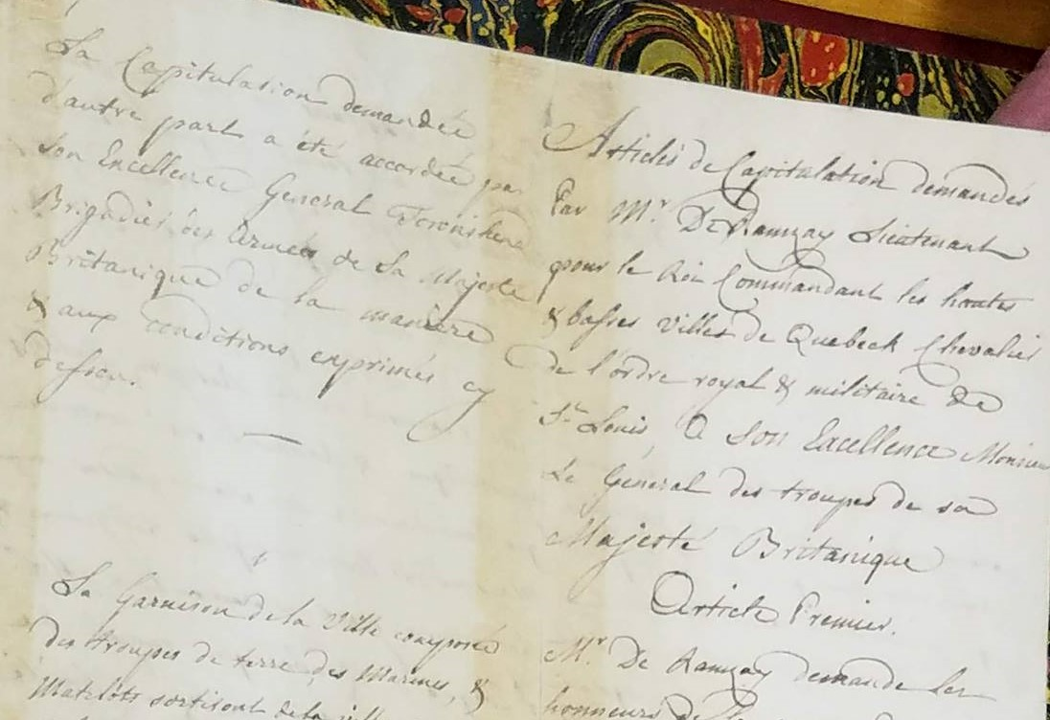 La Capitulation demandée
d'autre part a été accordée par
son Excellence General Tconshend
Brigadier des Armées de Sa Majesté
Britanique de la maniere
& aux conditions exprimés cy
dessou.
La Garnison de la Ville composée
des troupes de terre des Marines, &
Matelots sortiront de la ville
Articles de Capitulation demandés
Par Mr. De Ramzay Lieutenant
pour le Roi Commandant les hautes
& basses Villes de Quebeck Chevalier
de l'ordre royal & militaire de
St. Louis, A Son Excellence Monsieur
Le Général des troupes de sa
Majesté Britanique
Article Premier.
Mr. De Ramzay demande les
honneurs de